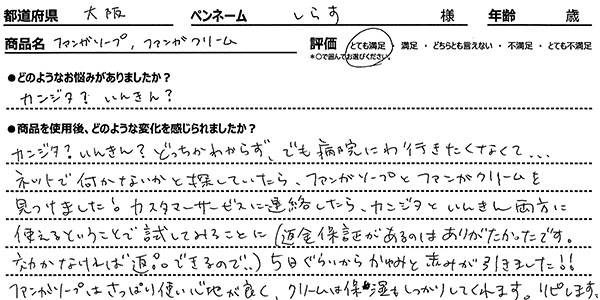 都道府県 大阪 ペンネーム しらす 様 年齢 歳
商品名 ファンガソープ, ファンガクリーム 評価 とても満足 ・ 満足 ・ どちらとも言えない ・ 不満足 ・ とても不満足
*○で囲んでお選びください。
●どのようなお悩みがありましたか?
カンジタ? いんきん?
●商品を使用後、どのような変化を感じられましたか?
カンジタ? いんきん? どっちかわからず、でも病院にわ行きたくなくて...
ネットで何かないかと探していたら、ファンガソープとファンガクリームを
見つけました! カスタマーサービスに連絡したら、カンジタといんきん両方に
使えるということで試してみることに (返金保証があるのはありがたかったです。
効かなければ返品できるので..) 5日ぐらいからかゆみと赤みが引きました!!
ファンガソープはさっぱり使い心地が良く、クリームは保湿もしっかりしてくれます。リピします。